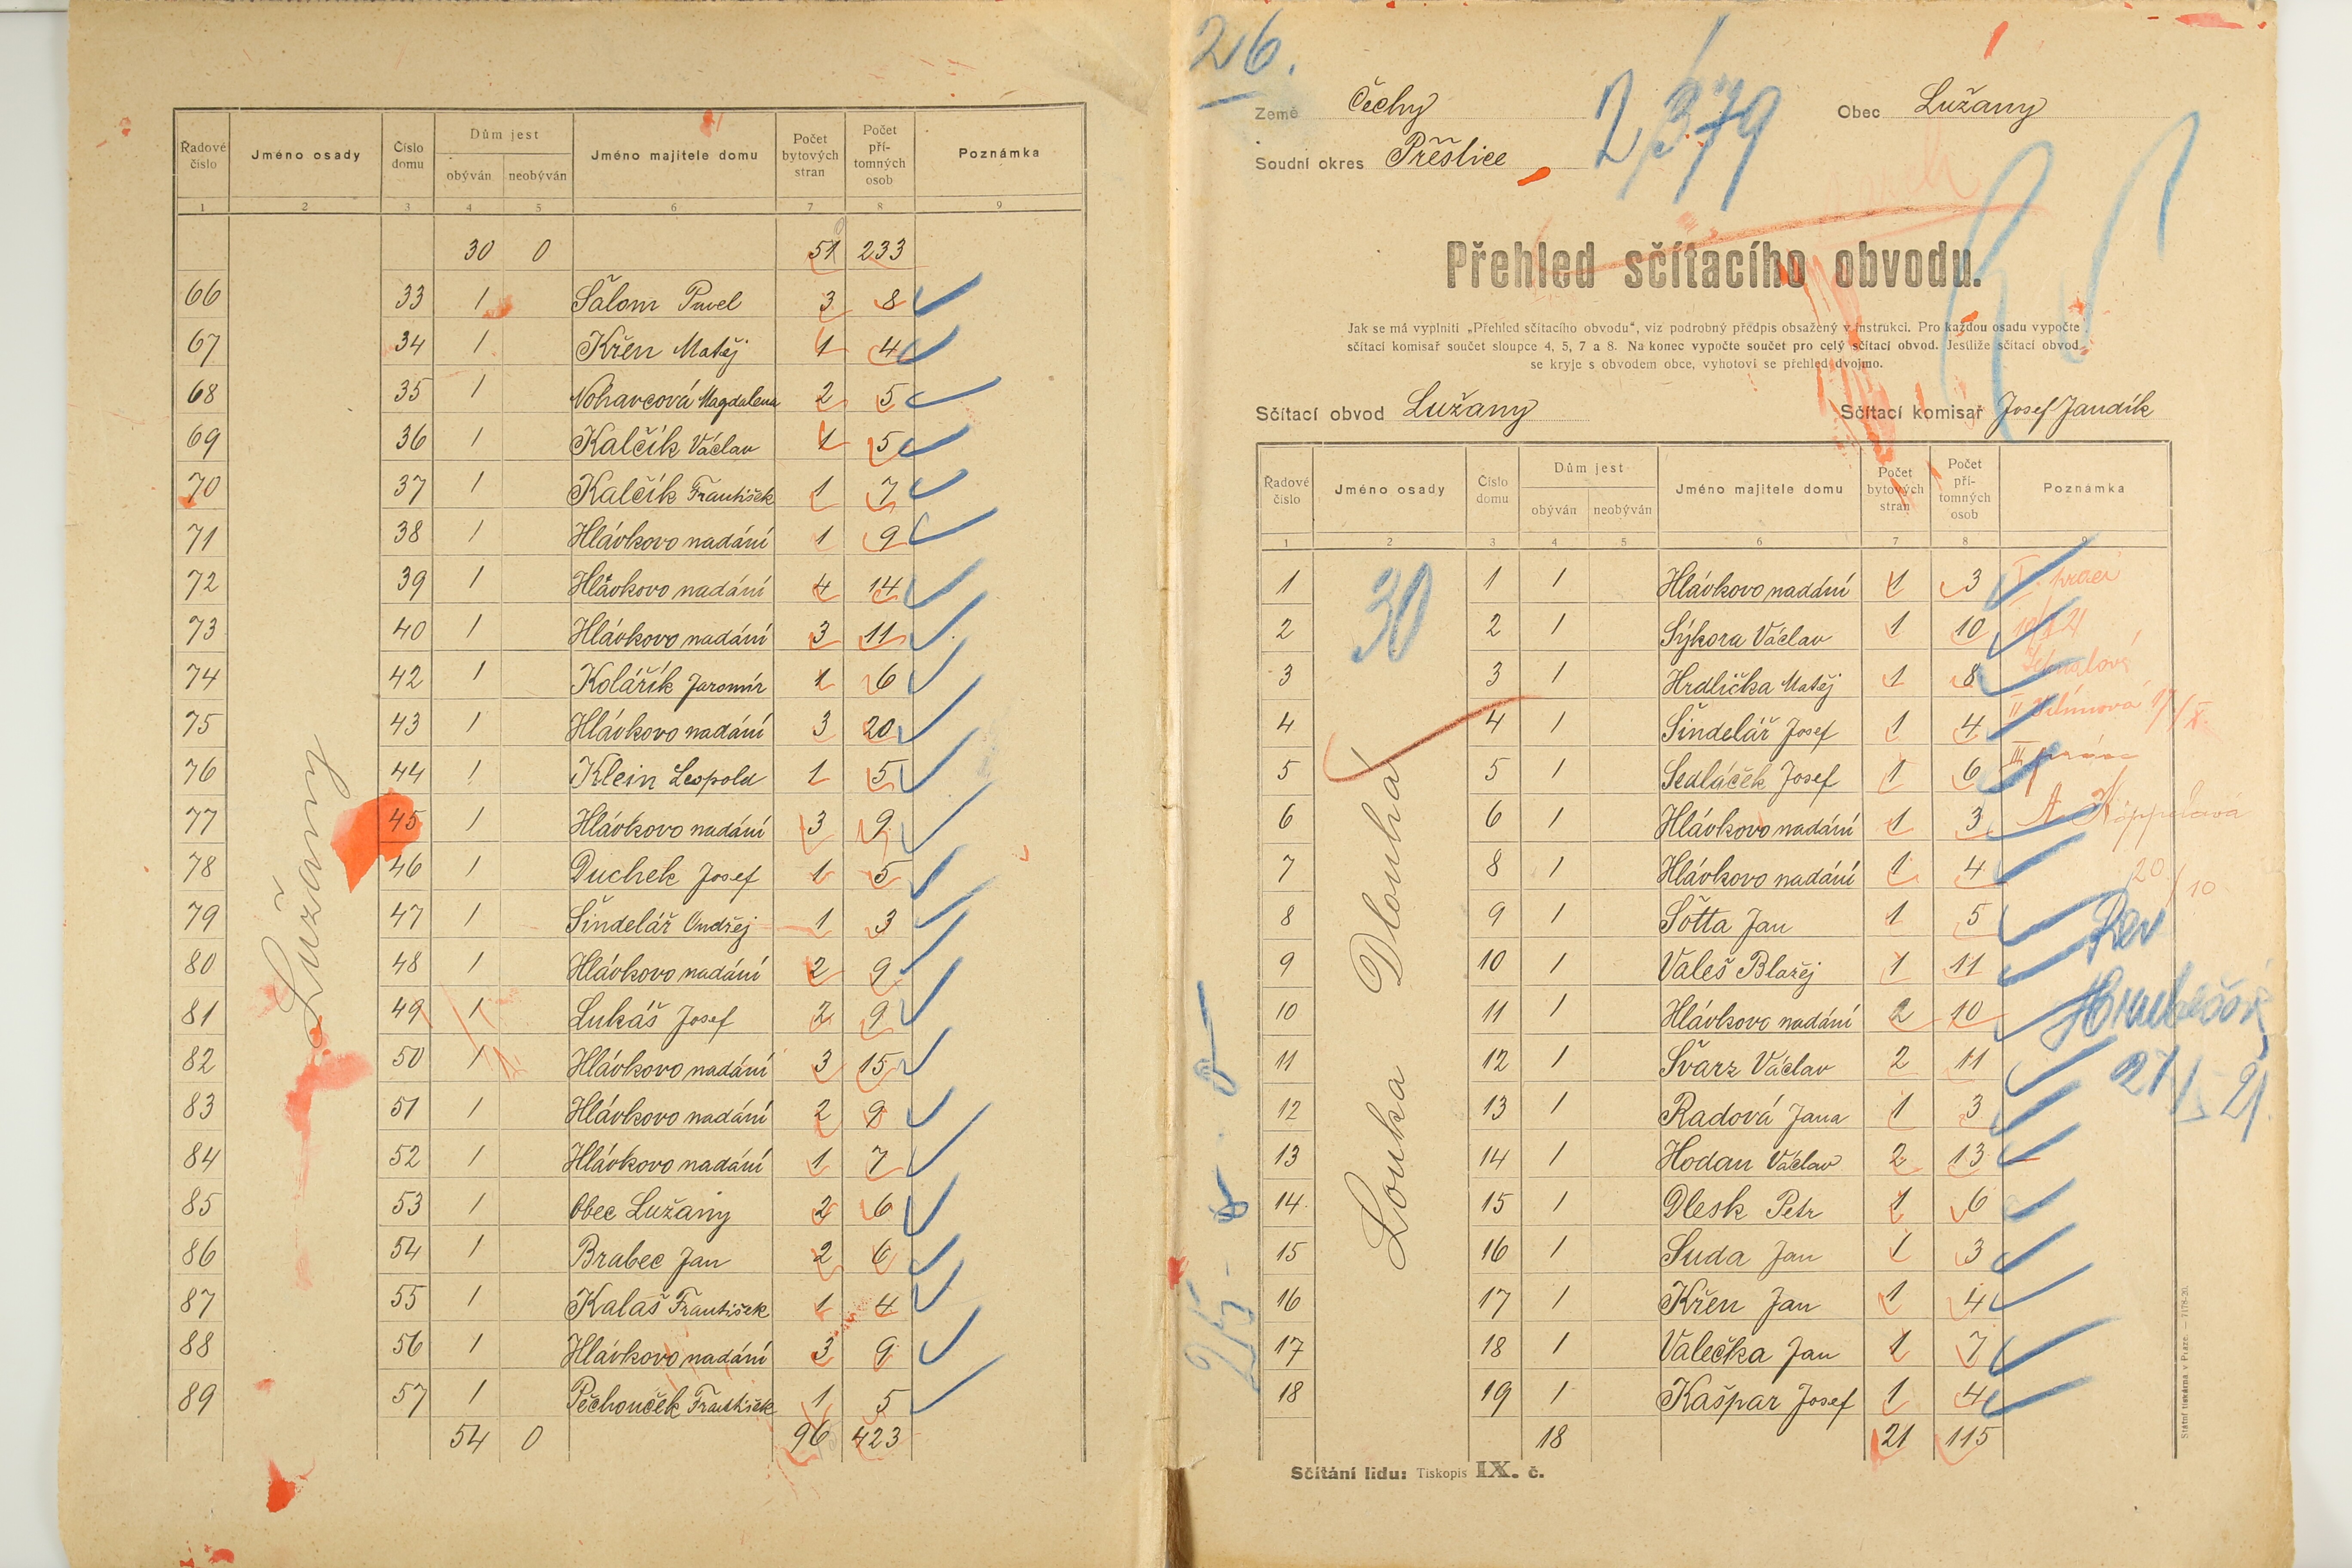 Řadové číslo | Jméno osady | Číslo domu | Dům jest obýván | neobýván | Jméno majitele domu | Počet bytových stran | Počet přítomných osob | Poznámka
1 2 3 4 5 6 7 8 9
30 0 51 233
Lužany
66 33 1 Šalom Pavel 3 8
67 34 1 Křen Matěj 1 4
68 35 1 Nohavcová Magdalena 2 5
69 36 1 Kalčík Václav 1 5
70 37 1 Kalčík František 1 7
71 38 1 Hlávkovo nadání 1 9
72 39 1 Hlávkovo nadání 4 14
73 40 1 Hlávkovo nadání 3 11
74 42 1 Kolářík Jaromír 1 6
75 43 1 Hlávkovo nadání 3 20
76 44 1 Klein Leopold 1 5
77 45 1 Hlávkovo nadání 3 9
78 46 1 Duchek Josef 1 5
79 47 1 Šindelář Ondřej 1 3
80 48 1 Hlávkovo nadání 2 9
81 49 1 Lukáš Josef 2 9
82 50 1 Hlávkovo nadání 3 15
83 51 1 Hlávkovo nadání 2 9
84 52 1 Hlávkovo nadání 1 7
85 53 1 Obec Lužany 2 6
86 54 1 Brabec Jan 2 6
87 55 1 Kalaš František 1 4
88 56 1 Hlávkovo nadání 3 9
89 57 1 Pěchouček František 1 5
54 0 96 423
26.
Země Čechy
2,379
Obec Lužany
Soudní okres Přeštice
Přehled sčítacího obvodu.
Jak se má vyplniti „Přehled sčítacího obvodu“, viz podrobný předpis obsažený v instrukci. Pro každou osadu vypočte
sčítací komisař součet sloupce 4, 5, 7 a 8. Na konec vypočte součet pro celý sčítací obvod. Jestliže sčítací obvod
se kryje s obvodem obce, vyhotoví se přehled dvojmo.
Sčítací obvod Lužany Sčítací komisař Josef Jandík
Řadové číslo | Jméno osady | Číslo domu | Dům jest obýván | neobýván | Jméno majitele domu | Počet bytových stran | Počet přítomných osob | Poznámka
1 2 3 4 5 6 7 8 9
30
Louka Dlouhá
1 1 1 Hlávkovo nadání 1 3
2 2 1 Sýkora Václav 1 10
3 3 1 Hrdlička Matěj 1 8
4 4 1 Šindelář Josef 1 4
5 5 1 Sedláček Josef 1 6
6 6 1 Hlávkovo nadání 1 3
7 8 1 Hlávkovo nadání 1 4
20/10
8 9 1 Šotta Jan 1 5
Rev
9 10 1 Valeš Blažej 1 11
10 11 1 Hlávkovo nadání 2 10
11 12 1 Švarz Václav 2 11
12 13 1 Radová Jana 1 3
13 14 1 Hodan Václav 2 13
14 15 1 Dlesk Petr 1 6
15 16 1 Suda Jan 1 3
16 17 1 Křen Jan 1 4
17 18 1 Valečka Jan 1 7
18 19 1 Kašpar Josef 1 4
18 21 115
Sčítání lidu: Tiskopis IX. č.
Státní tiskárna v Praze. — 7178-20.